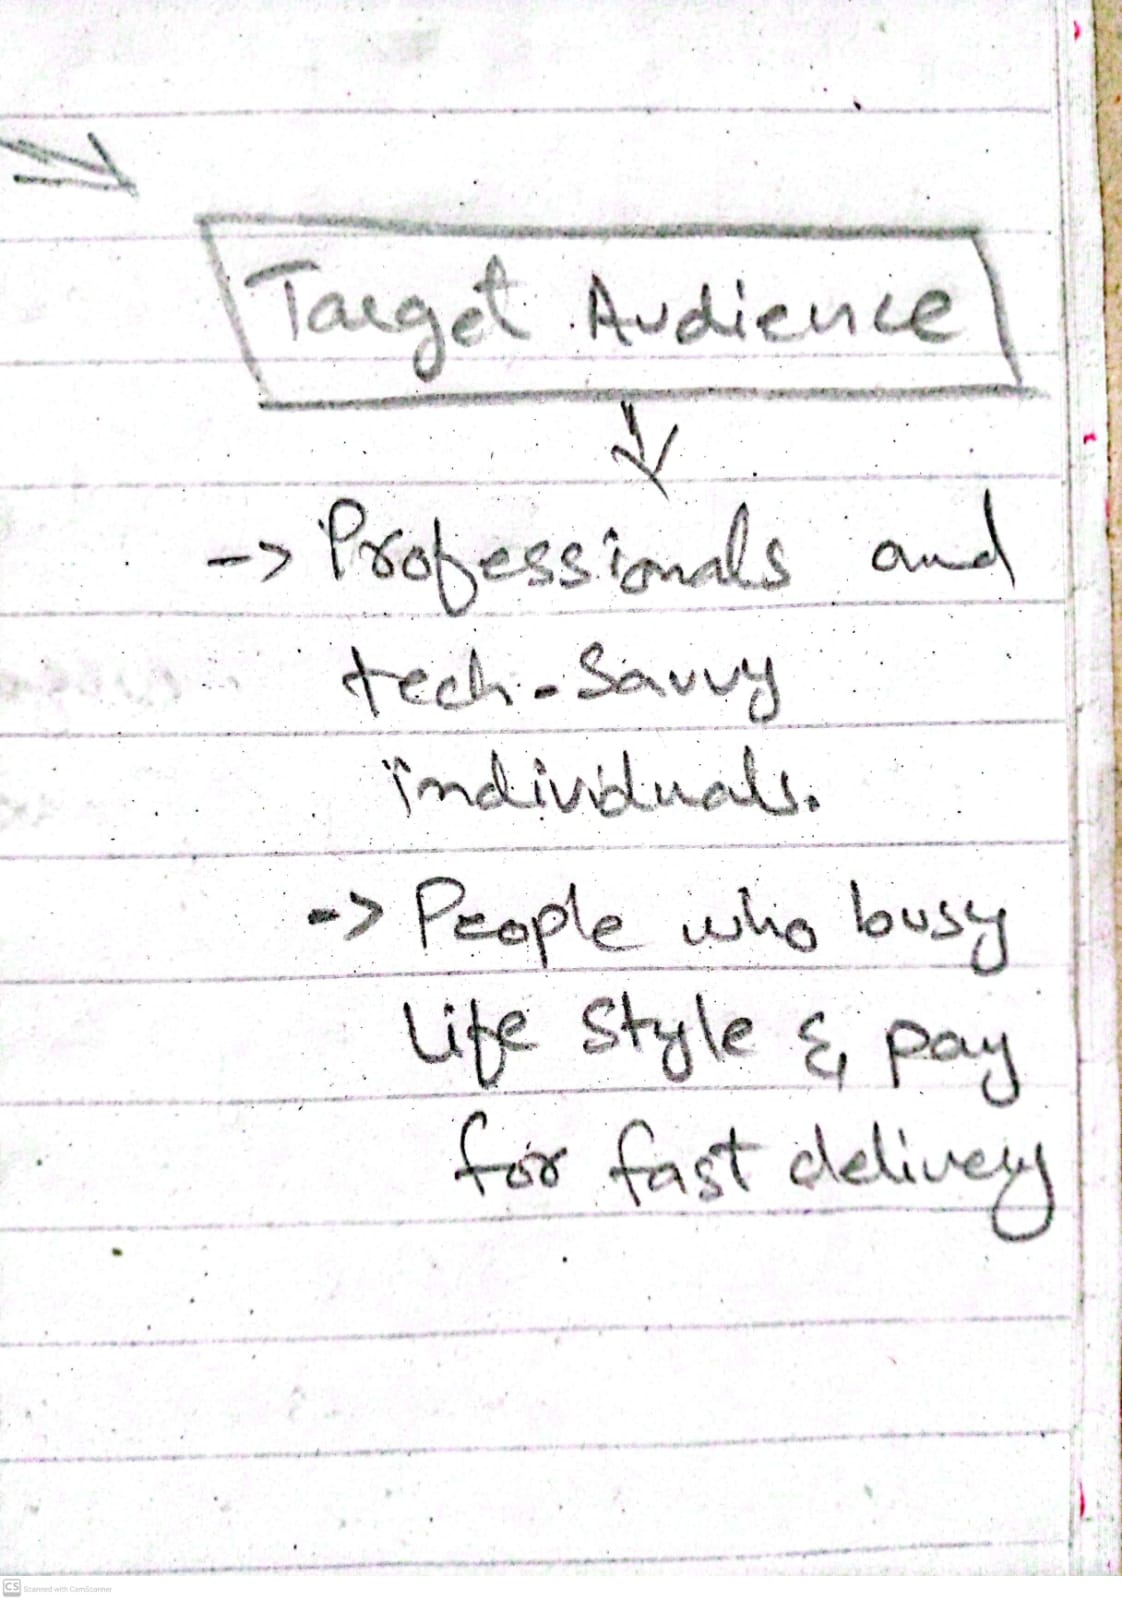 Target Audience
-> Professionals and
tech-Savvy
individuals.
-> People who busy
Life Style & pay
for fast delivery
CS Scanned with CamScanner